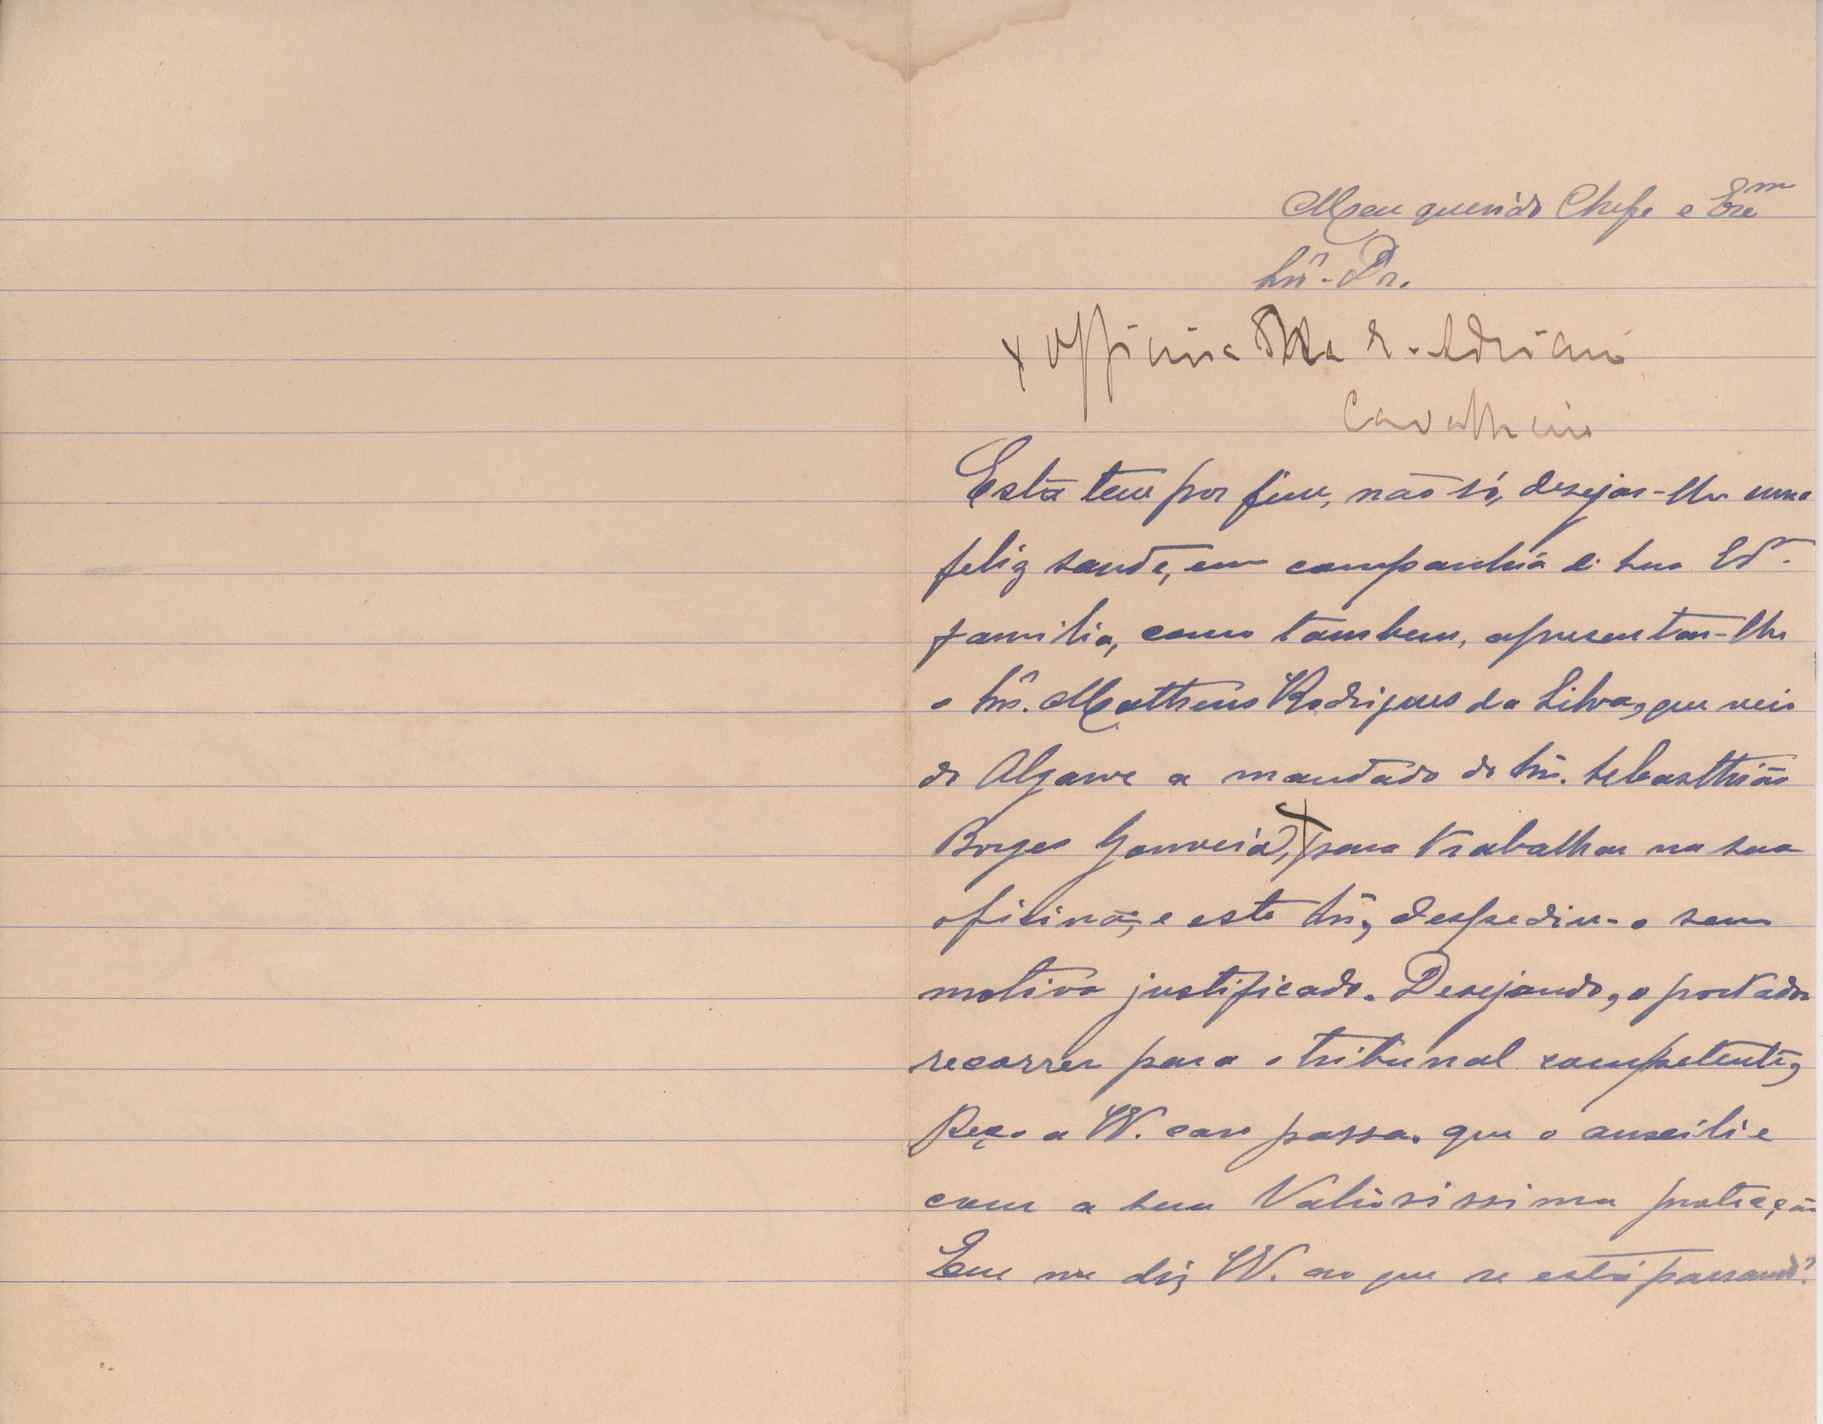 Meu querido Chefe e Exmº
Snr. Dr.
x Officina R. Adriano
Cavalheiro
Esta tem por fim, não só, desejar-lhe uma
feliz saude, em companhia de sua
familia, como tambem, apresentar-lhe
o Snr. Matheus Rodrigues da Silva, que veio
do Algarve a mandado do Snr. Sebasthião
Borges Gouveia, x para trabalhar na sua
oficina; e este Snr, despediu-o sem
motivo justificado. Desejando, o portador
recorrer para o tribunal competente,
Peço a V. caso possa, que o auxilie
com a sua Valiosissima proteção
Que me diz V. ao que se está passand?